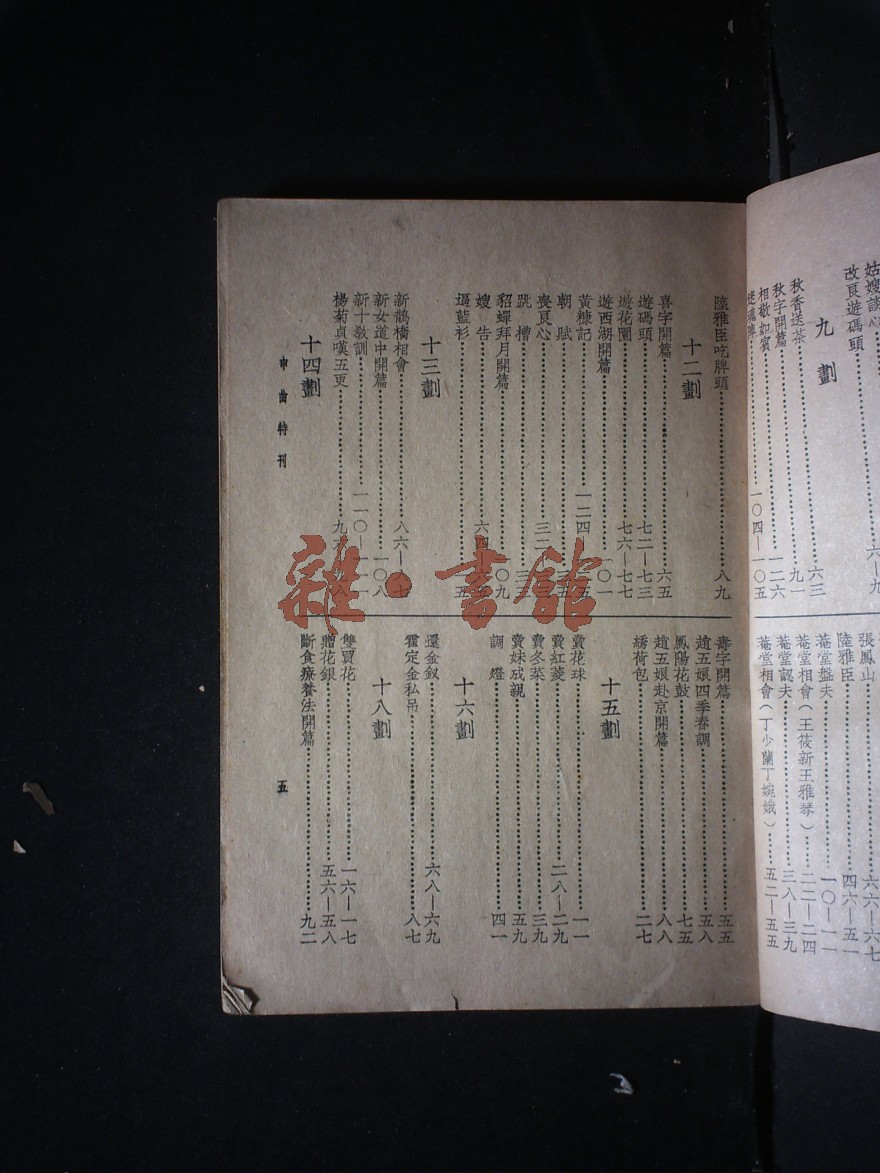 姑嫂談心
改良遊碼頭……六一九
九劃
秋香送茶……六三
秋字開篇……九一
相敬如賓……一二六
迷魂陣……一〇四—一〇五
張鳳山……六六—六七
陸雅臣……四六—五一
菴堂盤夫……一〇—一一
菴堂相會（王筱新王雅琴）……二二—二四
菴堂認夫……三八—三九
菴堂相會（丁少蘭丁婉娥）……五二—五五
陸雅臣吃牌頭……八九
十二劃
喜字開篇……六五
遊碼頭……七二—七三
遊花園……七六—七七
遊西湖開篇……一〇一
黃糠記……一二四
朝賦
喪良心……三二
跳槽
貂蟬拜月開篇……〇九
嫂告……六四
逼藍衫……五
十三劃
新鵲橋相會……八六—
新女道中開篇……一〇八
新十教訓……一一〇—一一
楊菊貞嘆五更……九
十四劃
申曲特刊
壽字開篇……五五
趙五娘四季春調……五八
鳳陽花鼓……七五
趙五娘赴京開篇……八八
綉荷包……二七
十五劃
賣花球……一一
賣紅菱……二八—二九
賣冬菜……三九
賣妹成親……五九
調燈……四一
十六劃
還金釵……六八—六九
霍定金私吊……八七
十八劃
雙賣花……一六—一七
贈花銀……五六—五八
斷食療養法開篇……九二
五
雜·書館